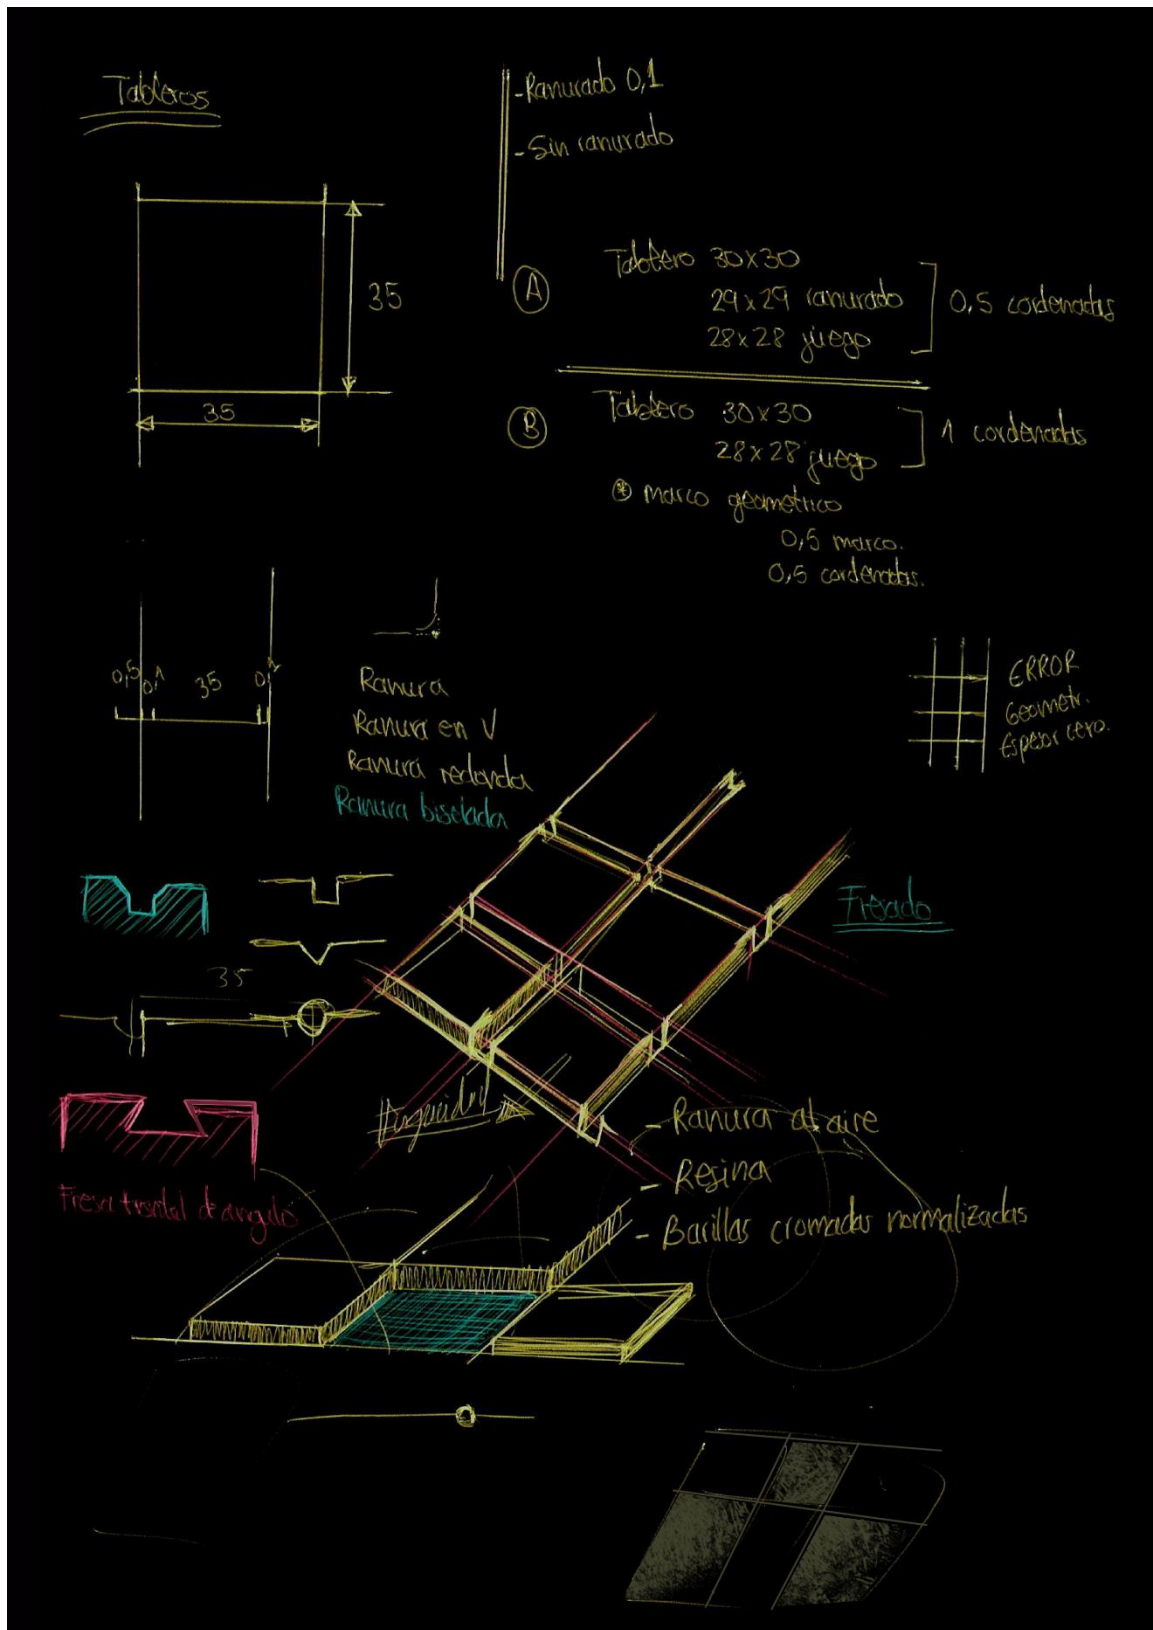 Tableros
-Ranurado 0,1
-Sin ranurado
35
35
A
Tablero 30x30
29x29 ranurado
28x28 juego
0,5 cordenadas
B
Tablero 30x30
28x28 juego
1 cordenadas
* marco geométrico
0,5 marco.
0,5 cordenadas.
0,5 0,1 35 0,1
Ranura
Ranura en V
Ranura redonda
Ranura biselada
ERROR
Geometr.
Espesor cero.
Fresado
35
Fresa frontal de angulo
- Ranura al aire
- Resina
- Barillas cromadas normalizadas